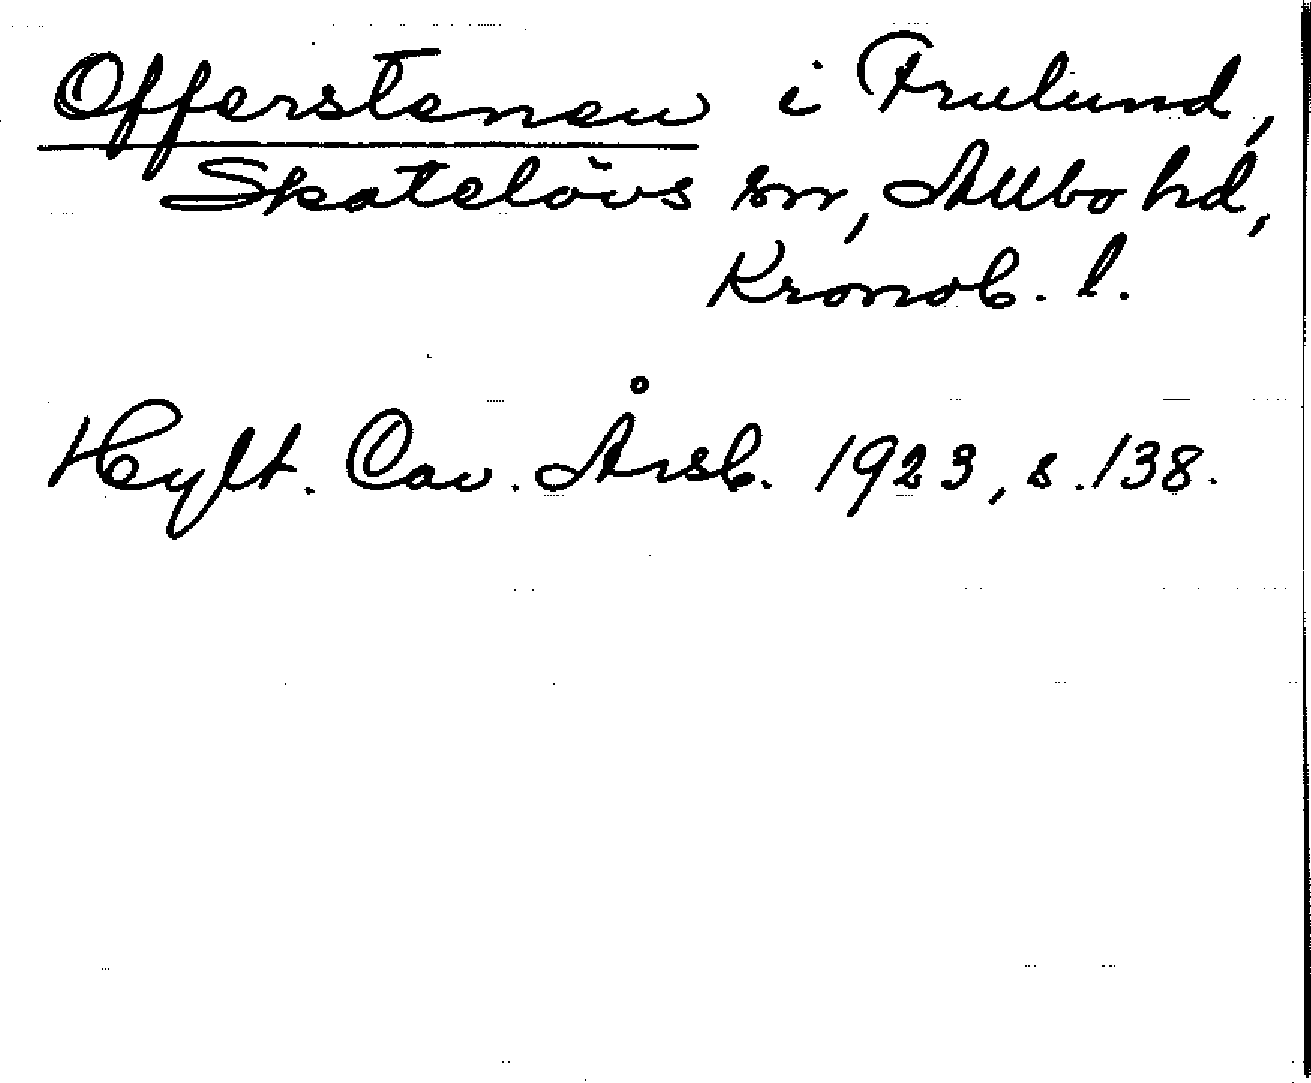 Offerstenen i Frulund,
Skatelövs sn, Allbo hd,
Kronob. l.
Hylt. Cav. Årsb. 1923, s. 138.